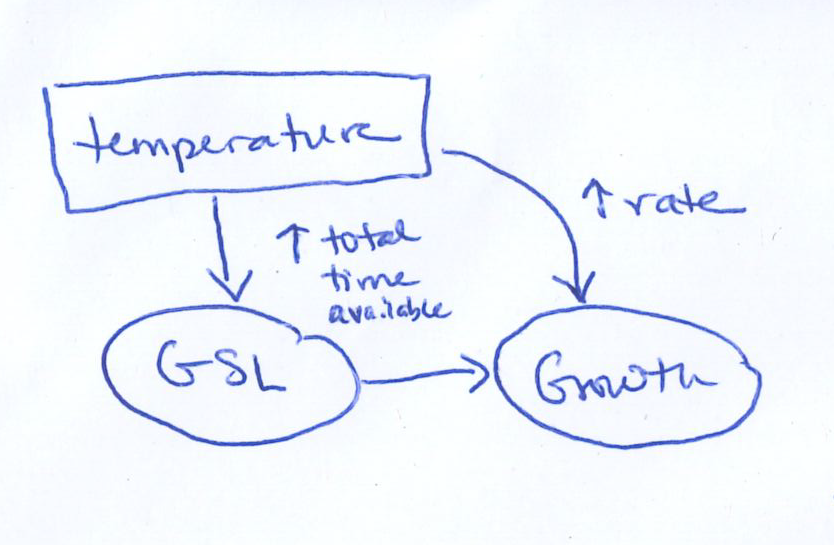 temperature
↑ rate
↑ total
time
available
GSL
Growth